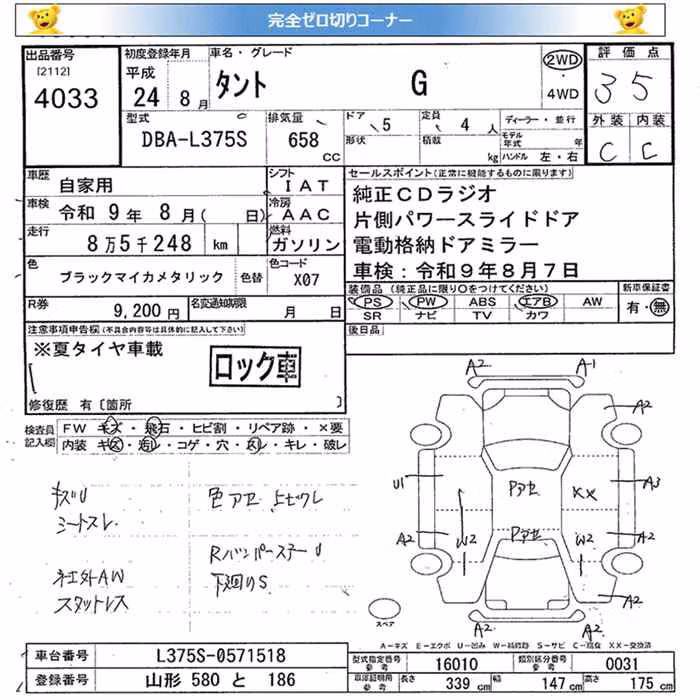 完全ゼロ切りコーナー
出品番号 [2112] 4033
初度登録年月 平成 24年 8月
車名・グレード タント G
2WD・4WD
評価点 3 5
外装 C 内装 C
型式 DBA-L375S
排気量 658 CC
ドア 形状 5
定員 4 人
積載 kg
ディーラー・並行
モデル年式 年
ハンドル 左・右
車歴 自家用
シフト IAT
車検 令和 9年 8月( 日)
冷房 AAC
走行 8万5千248 km
燃料 ガソリン
色 ブラックマイカメタリック 色替
色コード X07
R券 9,200円
名変通知期限 月 日
セールスポイント(正常に機能するものに限ります)
純正CDラジオ
片側パワースライドドア
電動格納ドアミラー
車検:令和9年8月7日
装備品(純正品に限り○をつけてください)
新車保証書 有・無
PS PW ABS エアB AW
SR ナビ TV カワ
後日品
注意事項申告欄(不具合内容等は具体的に記入して下さい)
※夏タイヤ車載
ロック車
修復歴 有〔箇所 〕
検査員記入欄
FW キズ・飛石・ヒビ割・リペア跡・×要
内装 キズ・汚れ・コゲ・穴・スレ・キレ・破レ
キズU
シートスレ
色アセ
RバンパーステーU
下廻りS
社外AW
スタッドレス
A2 A-1
A2
U1 Pアセ XX A3
Pアセ
A2 W2 W2 A2
A2
A2
スペア
A-キズ E-エクボ U-凹み W-補修跡 S-サビ C-腐食 XX-交換済
車台番号 L375S-0571518
登録番号 山形 580 と 186
型式指定番号 参考 16010
類別区分番号 参考 0031
車庫証明記載 参考 長さ 339 cm 幅 147 cm 高さ 175 cm